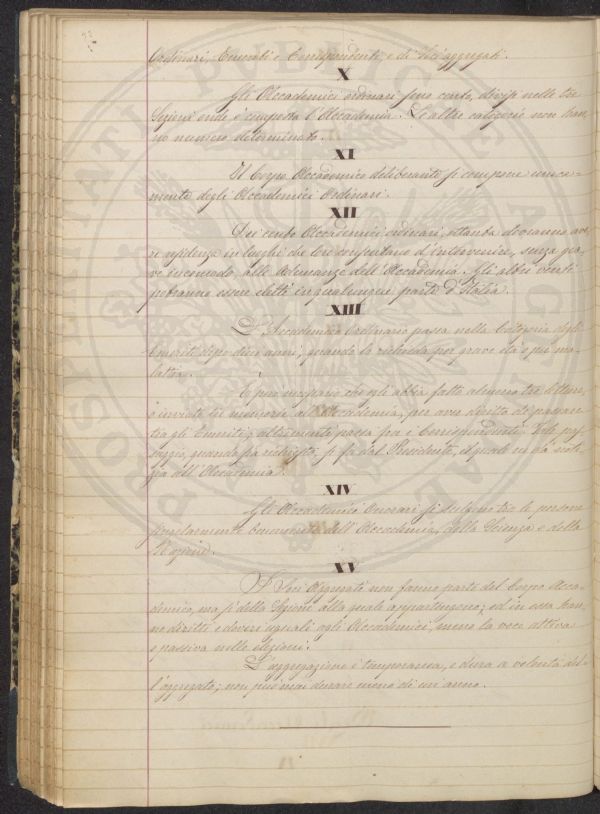 Ordinari, Emeriti e Corrispondenti, e di Soci aggregati.
X
Gli Accademici ordinari sono cento, divisi nelle tre
Sezioni onde è composta l'Accademia. Le altre categorie non han-
no numero determinato.
XI
Il Corpo Accademico deliberante si compone unica-
mente degli Accademici Ordinari.
XII
Dei cento Accademici ordinari, ottanta dovranno ave-
re residenza in luoghi che loro consentano d'intervenire, senza gra-
ve incomodo, alle Adunanze dell'Accademia. Gli altri venti
potranno essere eletti in qualunque parte d'Italia.
XIII
L'Accademico Ordinario passa nella Categoria degli
Emeriti dopo dieci anni, quando lo richieda per grave età o per ma-
lattia.
È però necessario che egli abbia fatto almeno tre letture,
o inviate tre memorie all'Accademia, per aver diritto di passare
tra gli Emeriti; altrimenti passa fra i Corrispondenti. Tale pas-
saggio, quando sia richiesto, si fa dal Presidente, il quale ne dà noti-
zia all'Accademia.
XIV
Gli Accademici Onorari si scelgono tra le persone
singolarmente benemerite dell'Accademia, della Scienza e della
Nazione.
XV
I Soci Aggregati non fanno parte del Corpo Acca-
demico, ma sì della Sezione alla quale appartengono; ed in essa han-
no diritti e doveri uguali agli Accademici, meno la voce attiva
e passiva nelle elezioni.
L'aggregazione è temporanea, e dura a volontà del-
l'aggregato; non può mai durare meno di un anno.
PROSPERITATI PUBLICAE